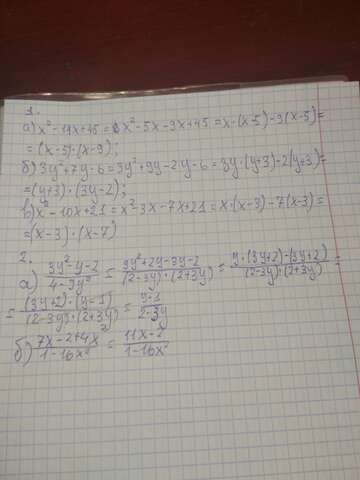 1.
а) x² - 14x + 45 = x² - 5x - 9x + 45 = x · (x - 5) - 9(x - 5) =
= (x - 5) · (x - 9);
б) 3y² + 7y - 6 = 3y² + 9y - 2y - 6 = 3y · (y + 3) - 2(y + 3) =
= (y + 3) · (3y - 2);
в) x² - 10x + 21 = x² - 3x - 7x + 21 = x · (x - 3) - 7(x - 3) =
= (x - 3) · (x - 7)
2.
а) (3y² - y - 2)/(4 - 9y²) = (3y² + 2y - 3y - 2)/((2 - 3y) · (2 + 3y)) = (y · (3y + 2) - (3y + 2))/((2 - 3y) · (2 + 3y)) =
= ((3y + 2) · (y - 1))/((2 - 3y) · (2 + 3y)) = (y - 1)/(2 - 3y)
б) (7x - 2 + 4x²)/(1 - 16x²) = (11x - 2)/(1 - 16x²)